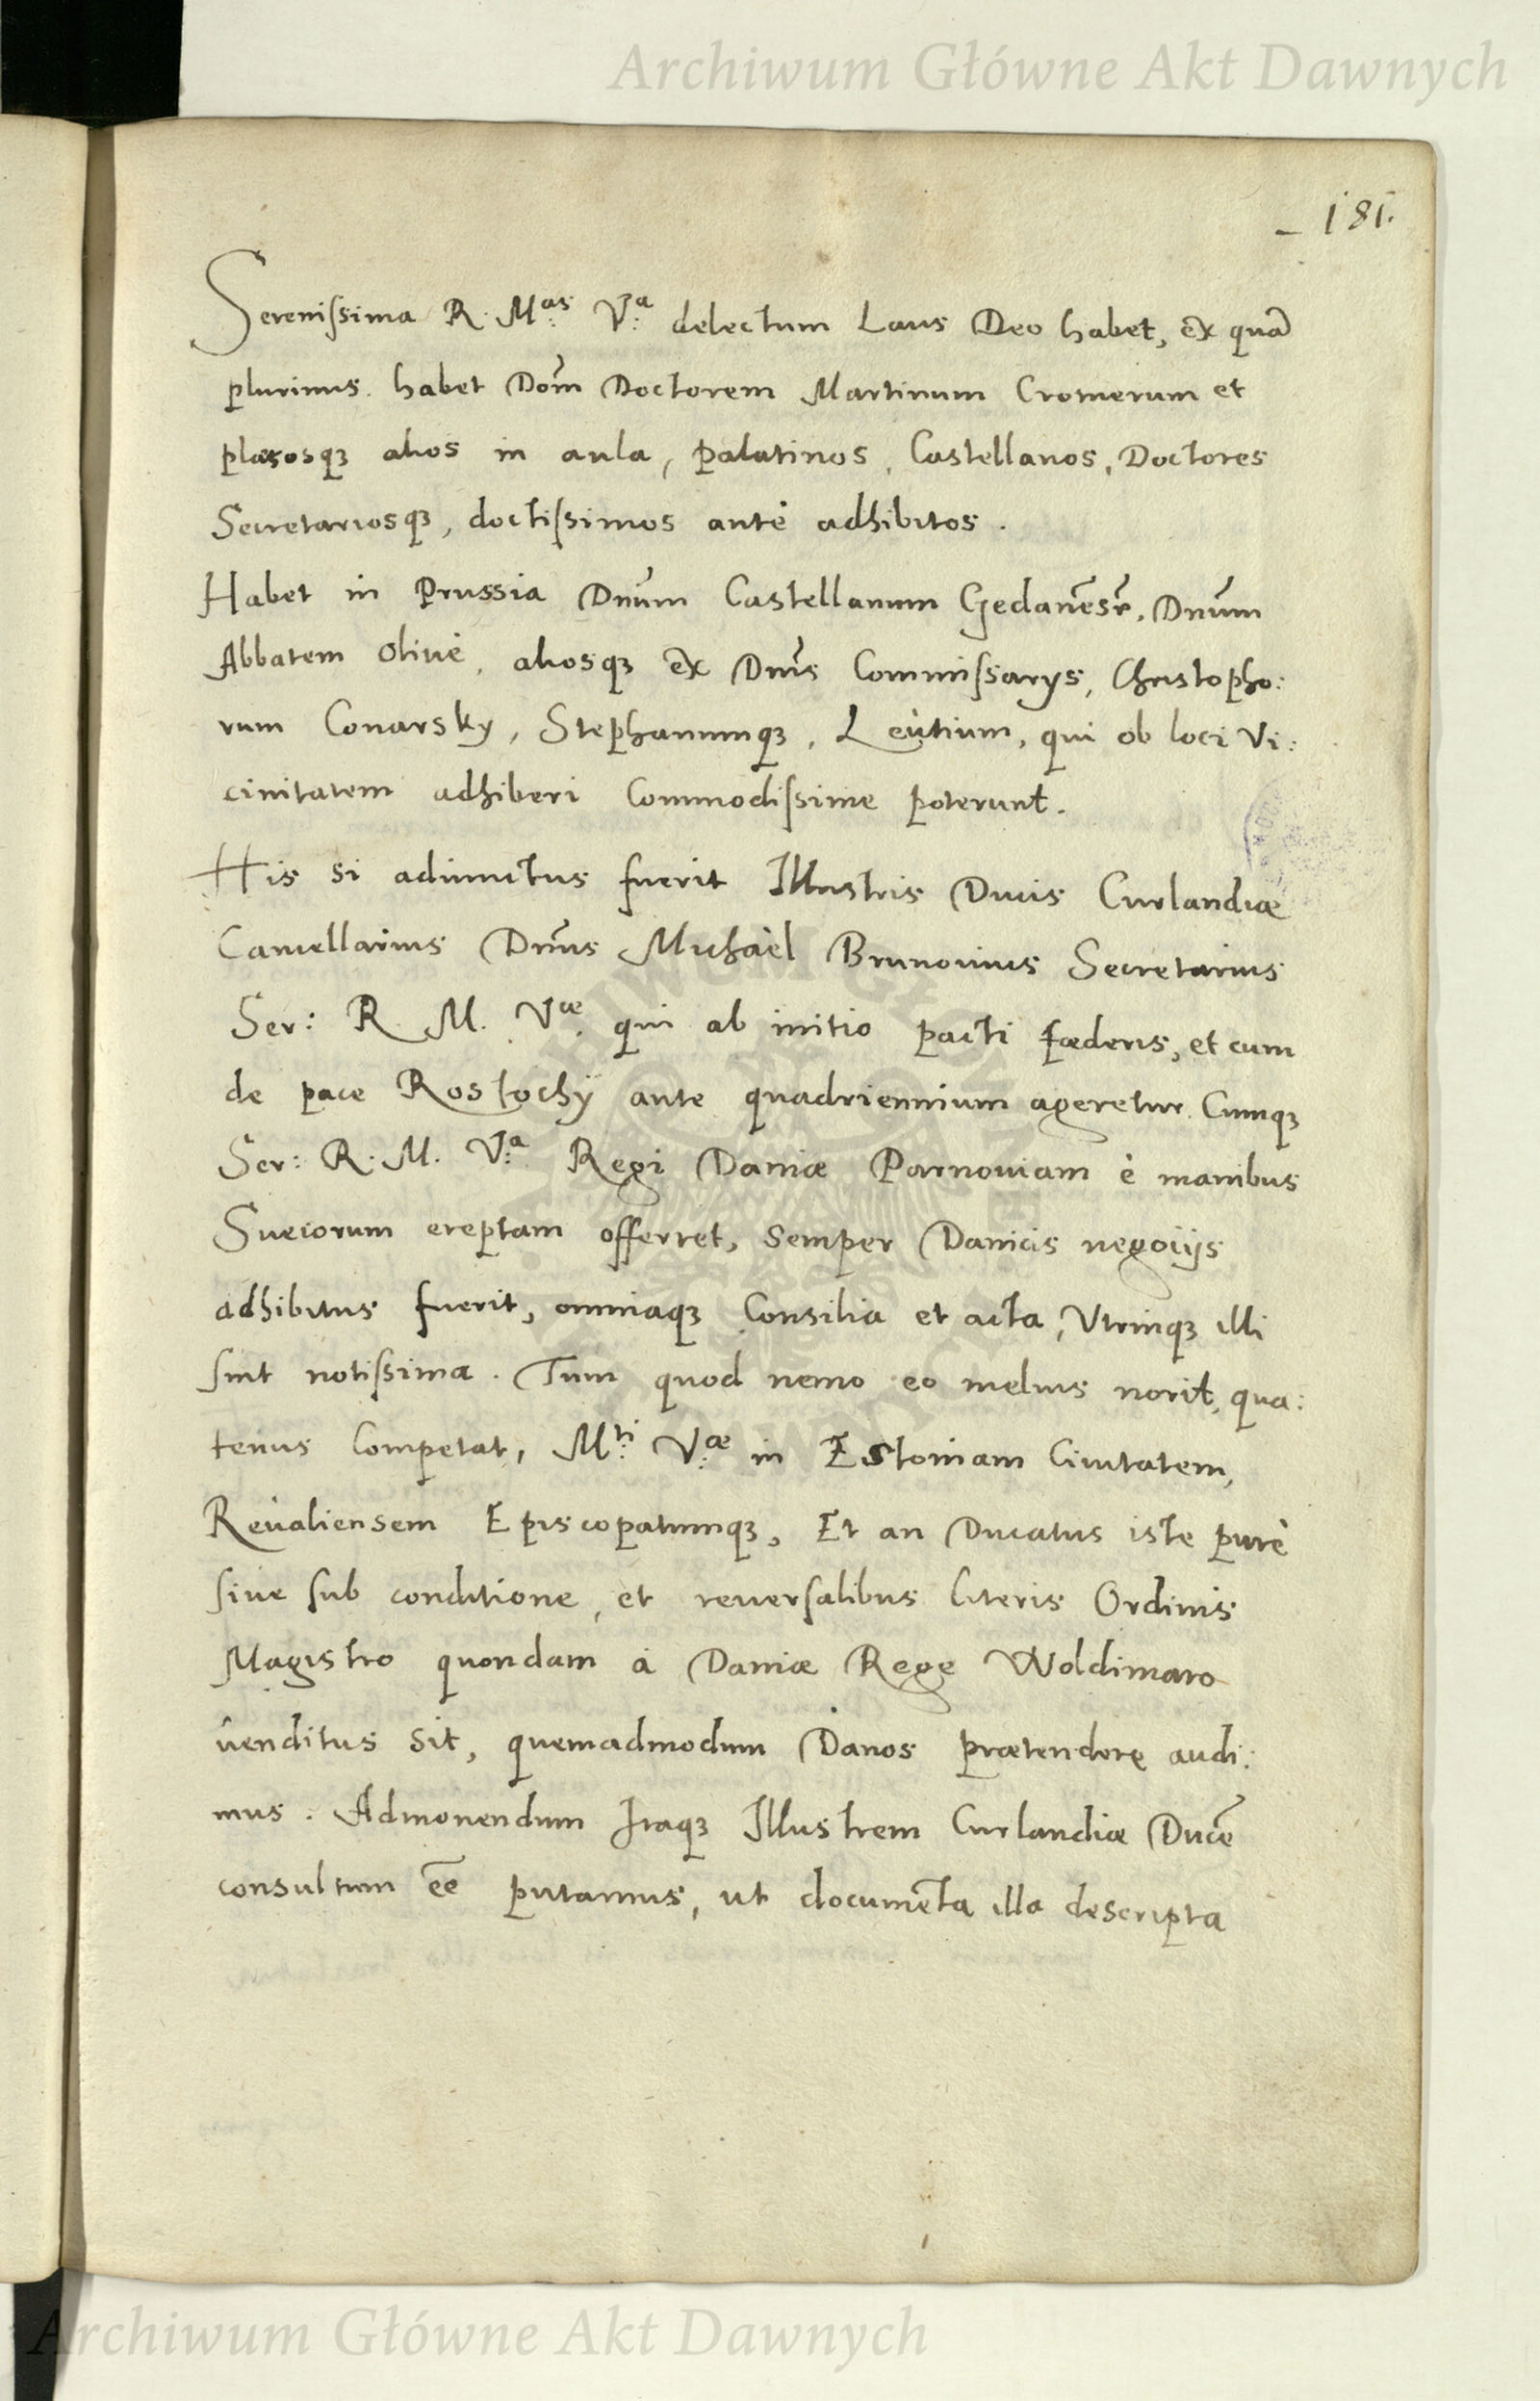 Archiwum Główne Akt Dawnych
181.
Serenissima R. M:as V:a delectum Laus Deo habet, ex quā
plurimus. habet Dom̄ Doctorem Martinum Cromerum et
plærosqʒ alios in aula, palatinos, Castellanos, Doctores
Secretariosqʒ, doctissimos antè adhibitos.
Habet in Prussia Dnūm Castellanum Gedanēsē, Dnūm
Abbatem Oliuè, aliosqʒ ex Dnīs Commissarys, Christopho:
rum Conarsky, Stephanumqʒ, Leùtium, qui ob loci Vi:
cinitatem adhiberi Commodissime poterunt.
His si adiunctus fuerit Illustris Ducis Curlandiæ
Cancellarius Dnūs Michaèl Brunouius Secretarius
Ser: R. M. V:æ qui ab initio pacti fœderis, et cum
de pace Rostochÿ ante quadriennium ageretur. Cumqʒ
Ser: R. M. V:a Regi Daniæ Parnouiam è manibus
Suecorum ereptam offerret, semper Danicis negociÿs
adhibitus fuerit, omniaqʒ Consilia et acta, Vtrinqʒ illi
sint notissima. Tum quod nemo eo melius norit, qua:
tenus Competat, M:ti V:æ in Estoniam Ciuitatem,
Reùaliensem Episcopatumqʒ, Et an Ducatus iste purè
siue sub conditione, et reuersalibus literis Ordinis
Magistro quondam à Daniæ Rege Woldimaro
ùenditus sit, quemadmodum Danos prætendere audi:
mus. Admonendum Itaqʒ Illustrem Curlandiæ Ducē
consultum ēē putamus, ut documēta illa descripta
Archiwum Główne Akt Dawnych